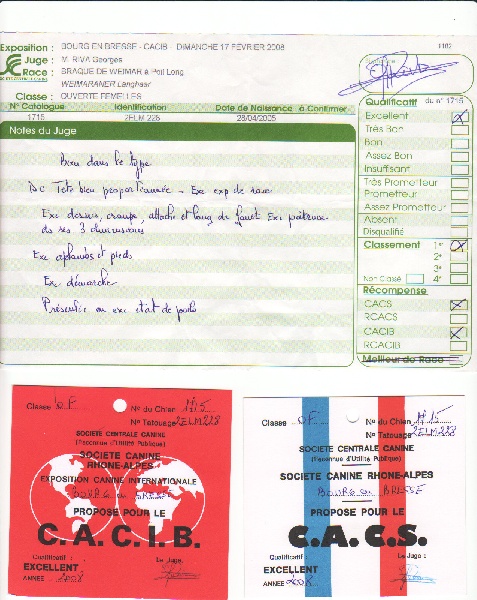 1182
Exposition : BOURG EN BRESSE - CACIB - DIMANCHE 17 FEVRIER 2008
Juge : M. RIVA Georges
Race : BRAQUE DE WEIMAR à Poil Long
WEIMARANER Langhaar
Classe : OUVERTE FEMELLES
N° Catalogue Identification Date de Naissance à Confirmer
1715 2ELM 228 28/04/2005
Notes du Juge
bien dans le type
DC Tête bien proportionnée - Exc exp de race
Exc dessus, croupe, attache et long de fouet Exc poitrine
ds ses 3 dimensions
Exc aplombs et pieds
Exc démarche
Présentée en exc état de poils
Qualificatif du n° 1715
Excellent
Très Bon
Bon
Assez Bon
Insuffisant
Très Prometteur
Prometteur
Assez Prometteur
Absent
Disqualifié
Classement 1er
2e
3e
Non Classé 4e
Récompense
CACS
RCACS
CACIB
RCACIB
Meilleur de Race
Classe OF N° du Chien 1715
N° Tatouage 2ELM228
SOCIETE CENTRALE CANINE
(Reconnue d'Utilité Publique)
SOCIETE CANINE
RHONE-ALPES
EXPOSITION CANINE INTERNATIONALE
BOURG en BRESSE
PROPOSE POUR LE
C.A.C.I.B.
Qualificatif : Le Juge,
EXCELLENT
ANNEE 2008
Classe OF N° du Chien 1715
N° Tatouage 2ELM228
SOCIETE CENTRALE CANINE
(Reconnue d'Utilité Publique)
SOCIETE CANINE RHONE-ALPES
BOURG en BRESSE
PROPOSE POUR LE
C.A.C.S.
Qualificatif : Le Juge :
EXCELLENT
ANNEE 2008